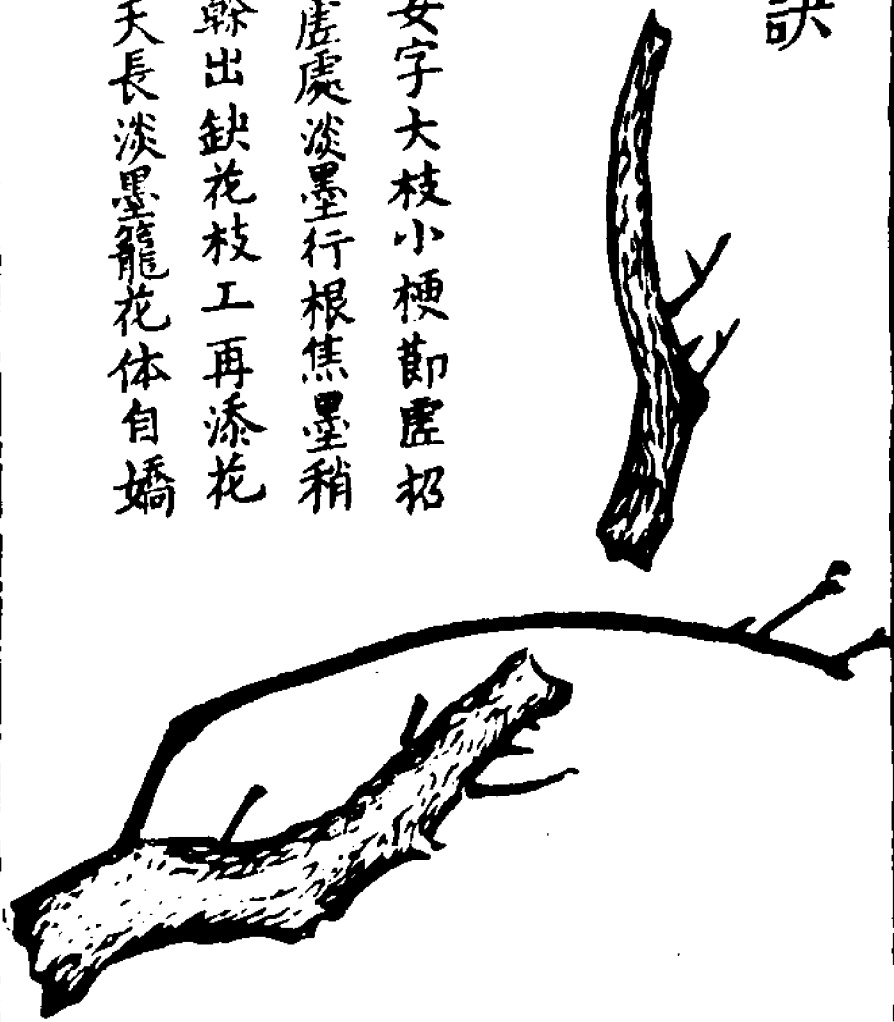 訣
女字大枝小梗節虛招
虛處淡墨行根焦墨稍
幹出缺花枝工再添花
天長淡墨籠花体自嬌